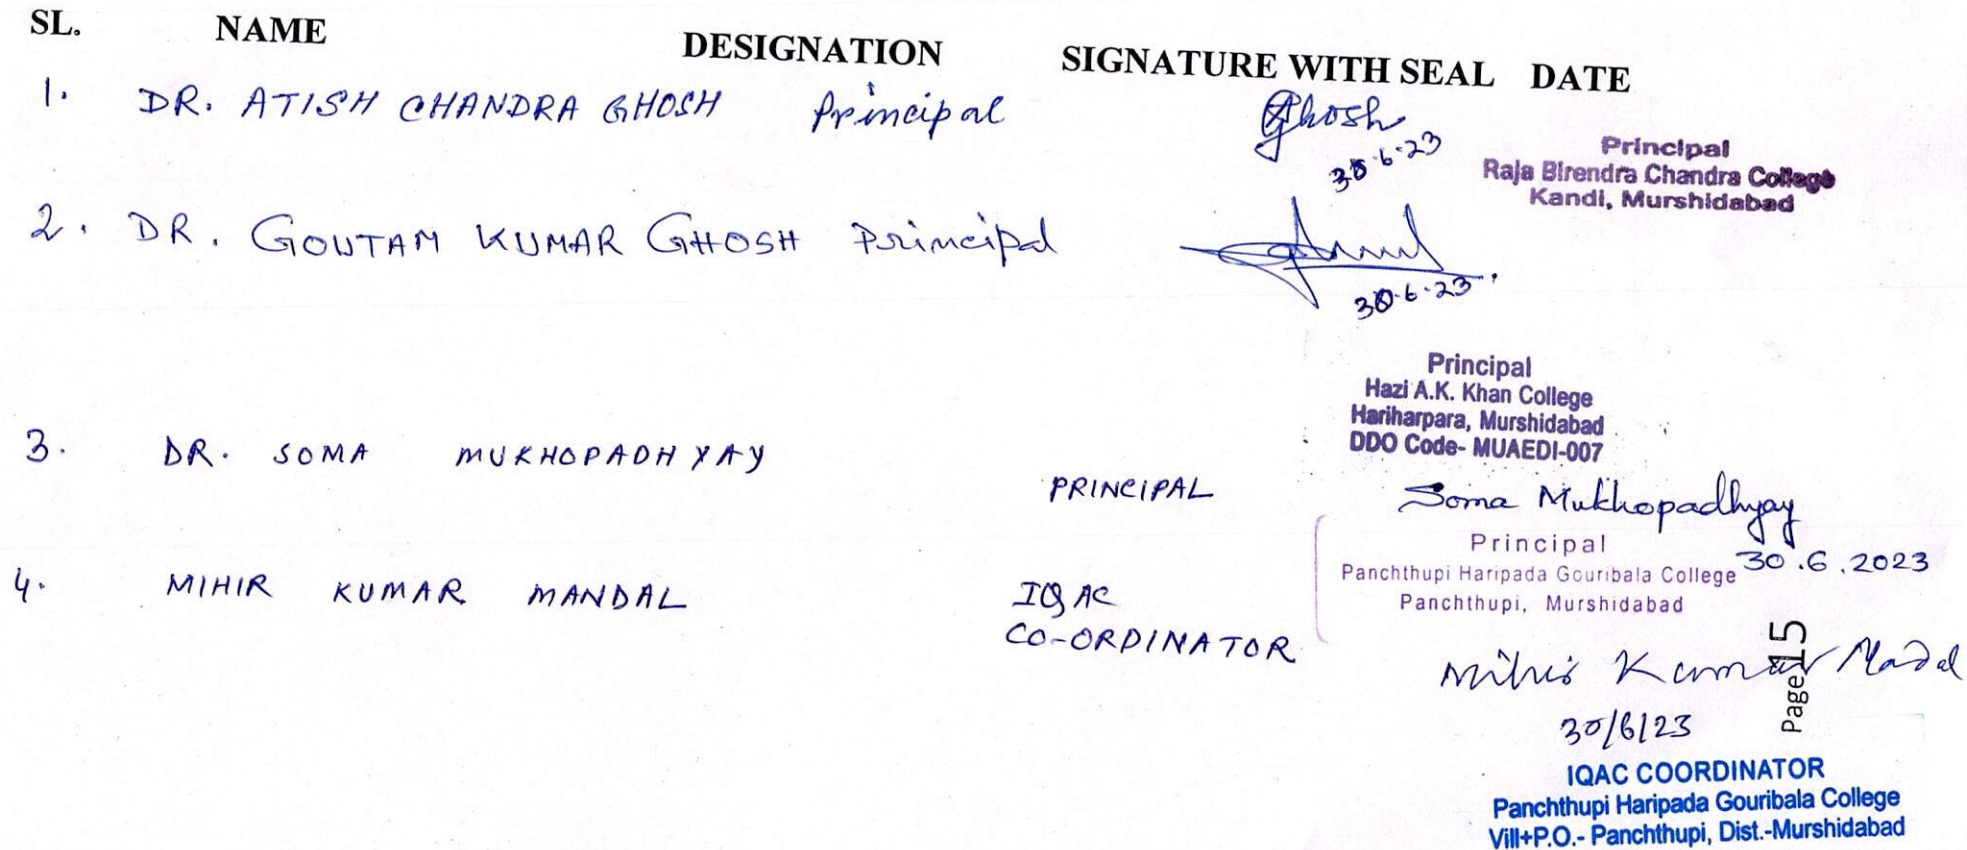 SL. NAME DESIGNATION SIGNATURE WITH SEAL DATE
1. DR. ATISH CHANDRA GHOSH Principal Ghosh
30.6.23
Principal
Raja Birendra Chandra College
Kandi, Murshidabad
2. DR. GOUTAM KUMAR GHOSH Principal
30.6.23
Principal
Hazi A.K. Khan College
Hariharpara, Murshidabad
DDO Code- MUAEDI-007
3. DR. SOMA MUKHOPADHYAY PRINCIPAL Soma Mukhopadhyay
30.6.2023
Principal
Panchthupi Haripada Gouribala College
Panchthupi, Murshidabad
4. MIHIR KUMAR MANDAL IQAC
CO-ORDINATOR
Mihir Kumar Mandal
30/6/23
Page 15
IQAC COORDINATOR
Panchthupi Haripada Gouribala College
Vill+P.O.- Panchthupi, Dist.-Murshidabad